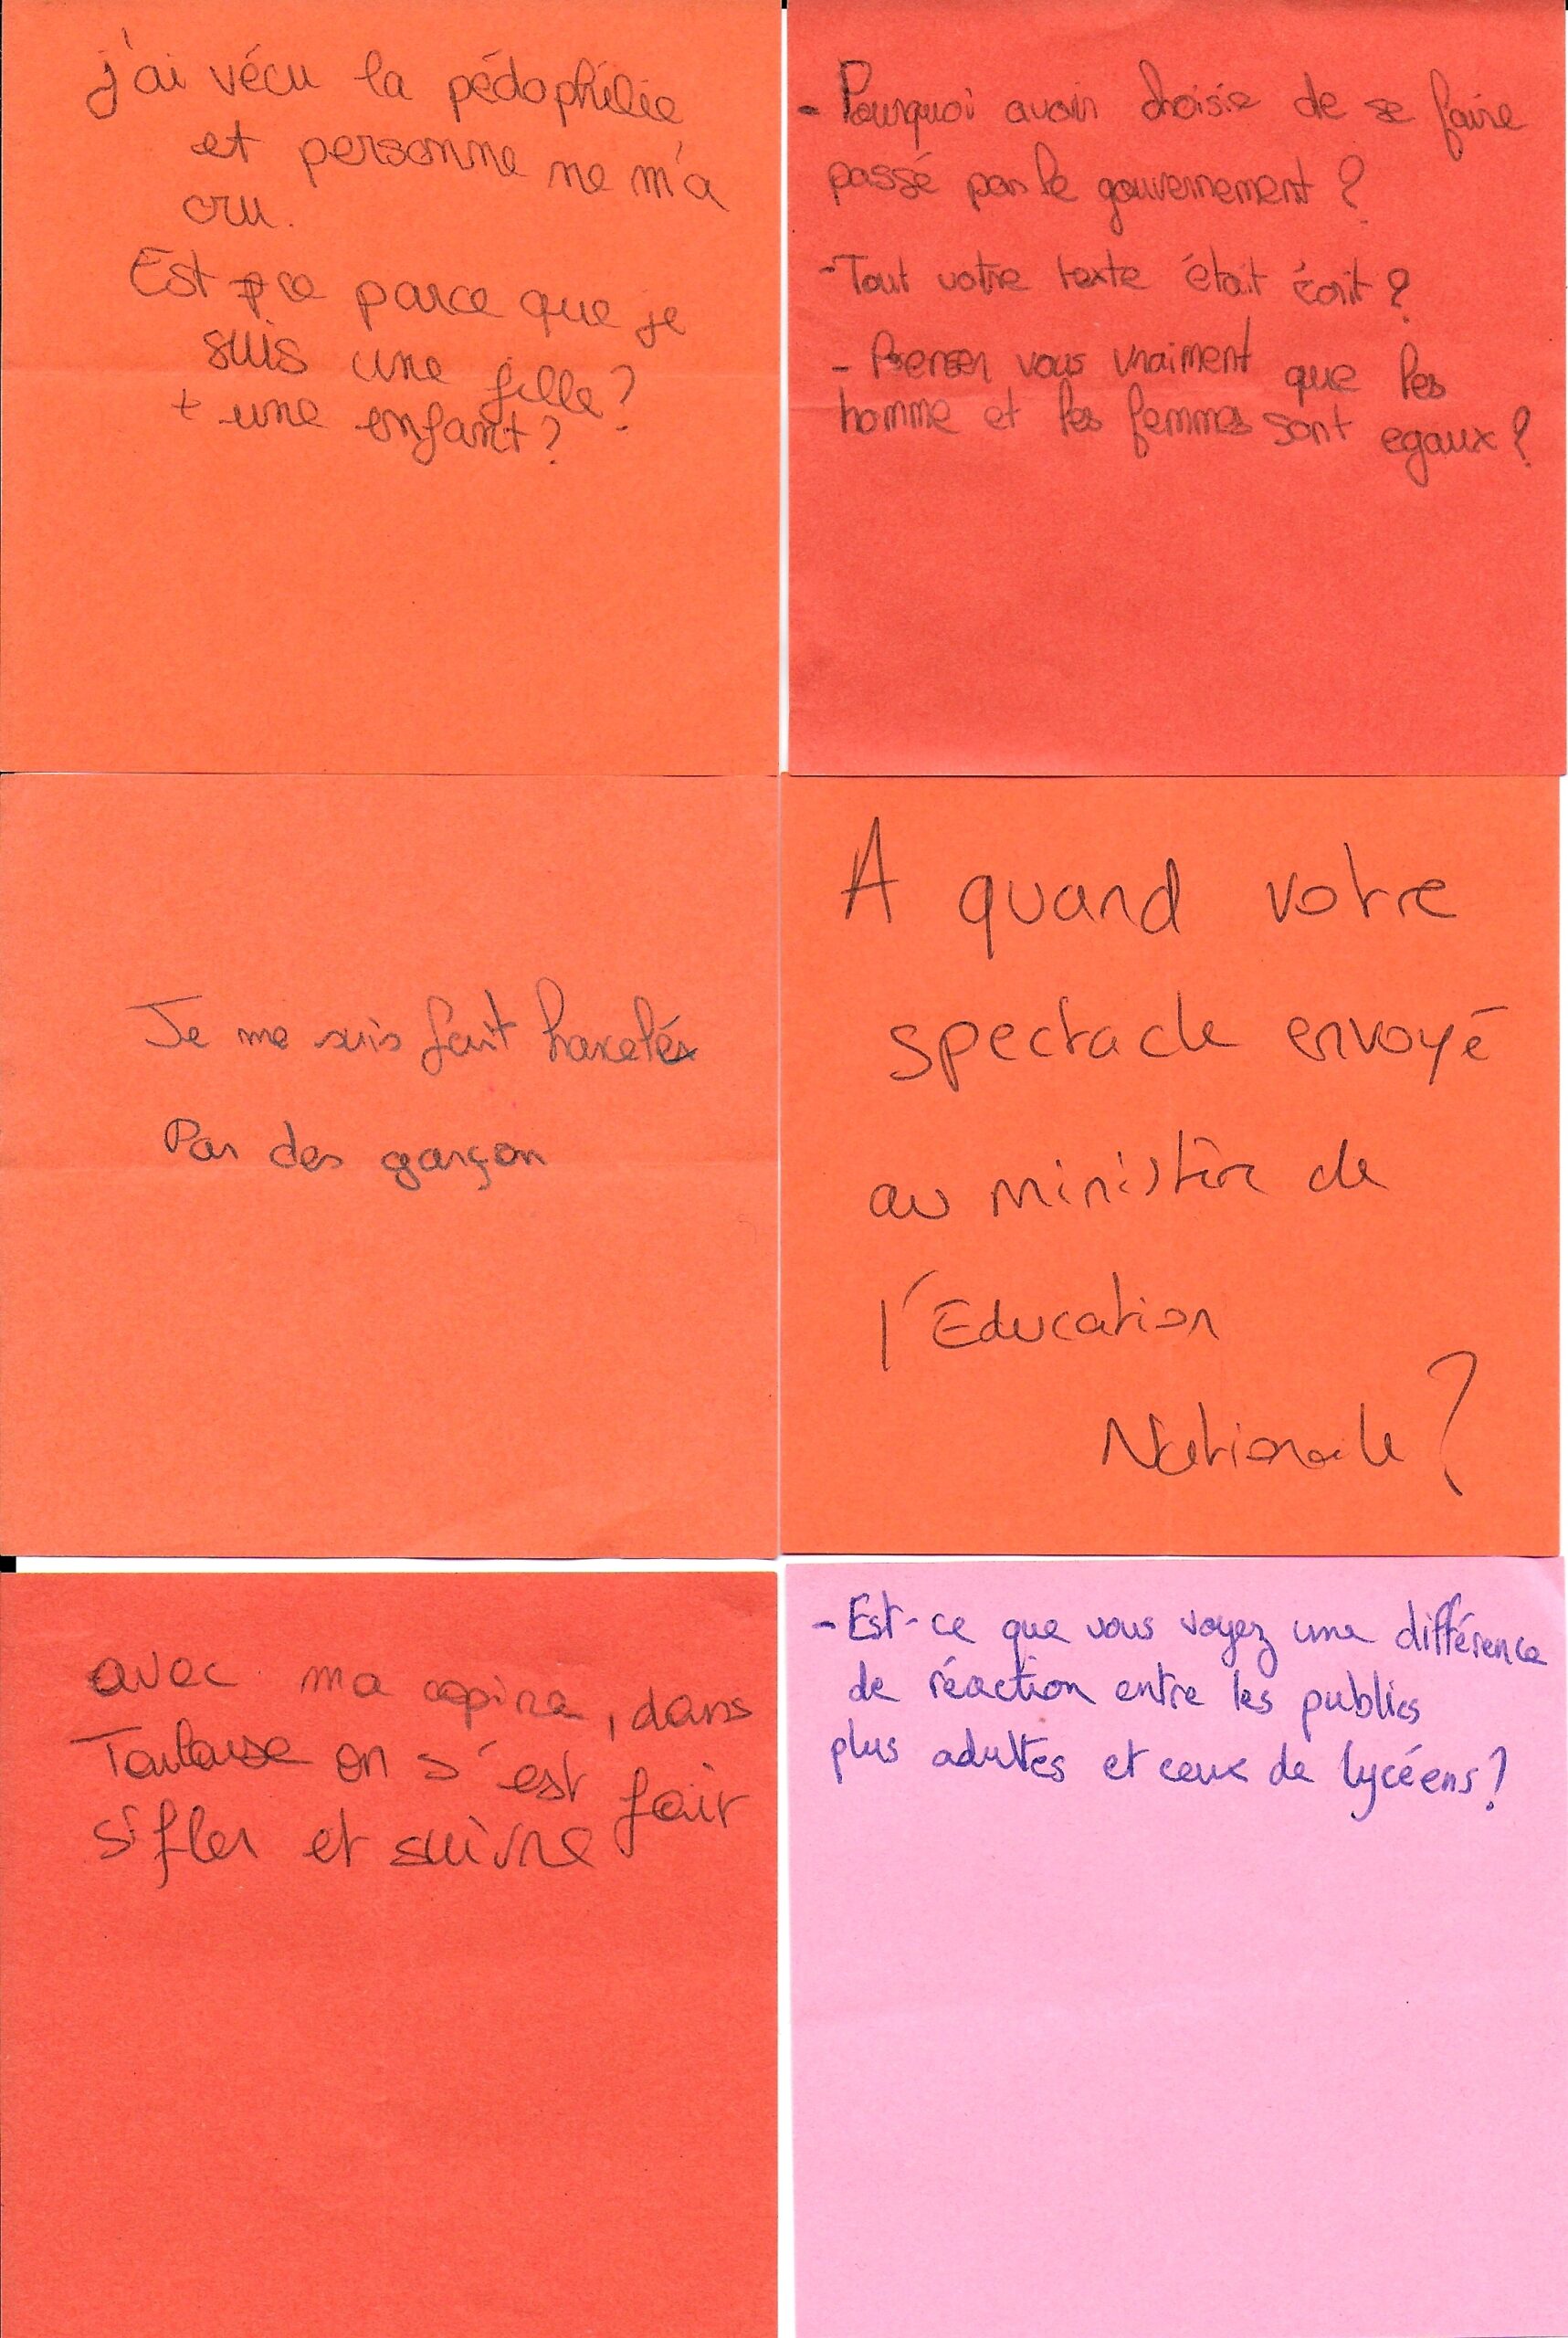 j'ai vécu la pédophilie
et personne ne m'a
cru.
Est ce parce que je
suis une fille?
+ une enfant?
- Pourquoi avoir choisie de se faire
passé par le gouvernement ?
- Tout votre texte était écrit ?
- Penser vous vraiment que les
homme et les femmes sont egaux ?
Je me suis fait harcelér
Par des garçon
A quand votre
spectacle envoyé
au ministère de
l'Education
Nationale ?
avec ma copine, dans
Toulouse on s'est fait
sifler et suivre
- Est-ce que vous voyez une différence
de réaction entre les publics
plus adultes et ceux de lycéens ?